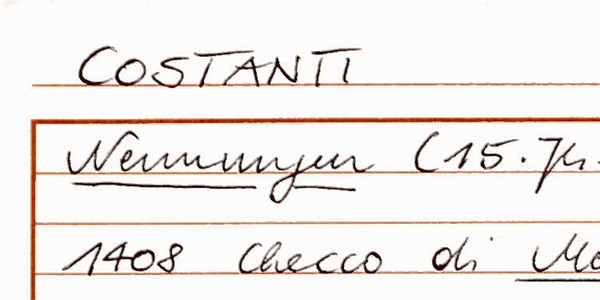 COSTANTI
Nennungen (15. Jh.
1408 Checco di Mo